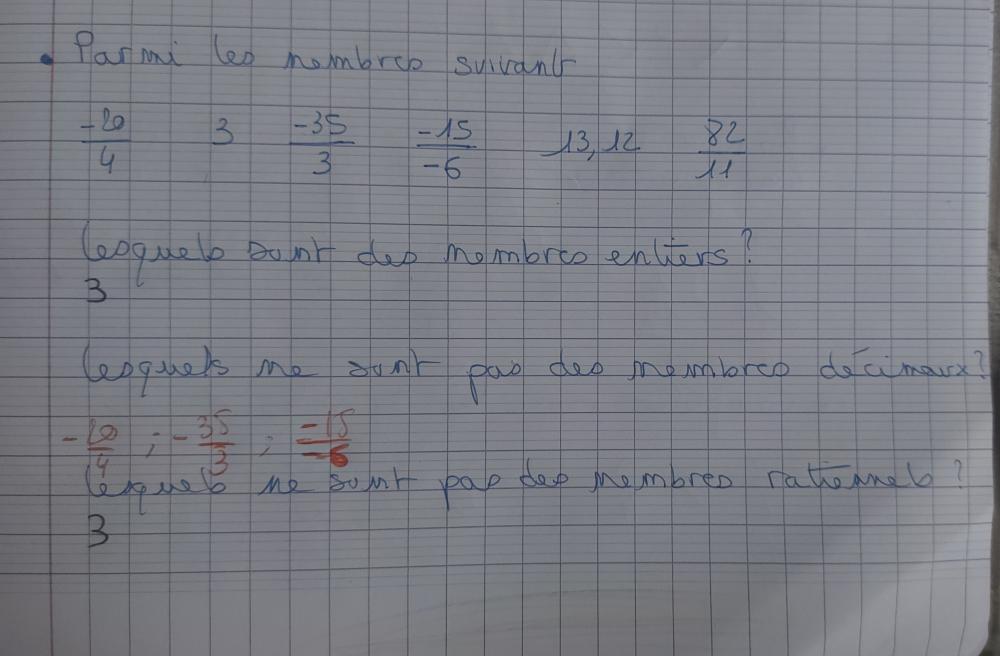 • Parmi les nombres suivant
-20/4 3 -35/3 -15/-6 13,12 82/11
lesquels sont des nombres entiers ?
3
lesquels ne sont pas des nombres décimaux ?
-20/4 ; -35/3 ; -15/-6
lesquels ne sont pas des nombres rationnels ?
3